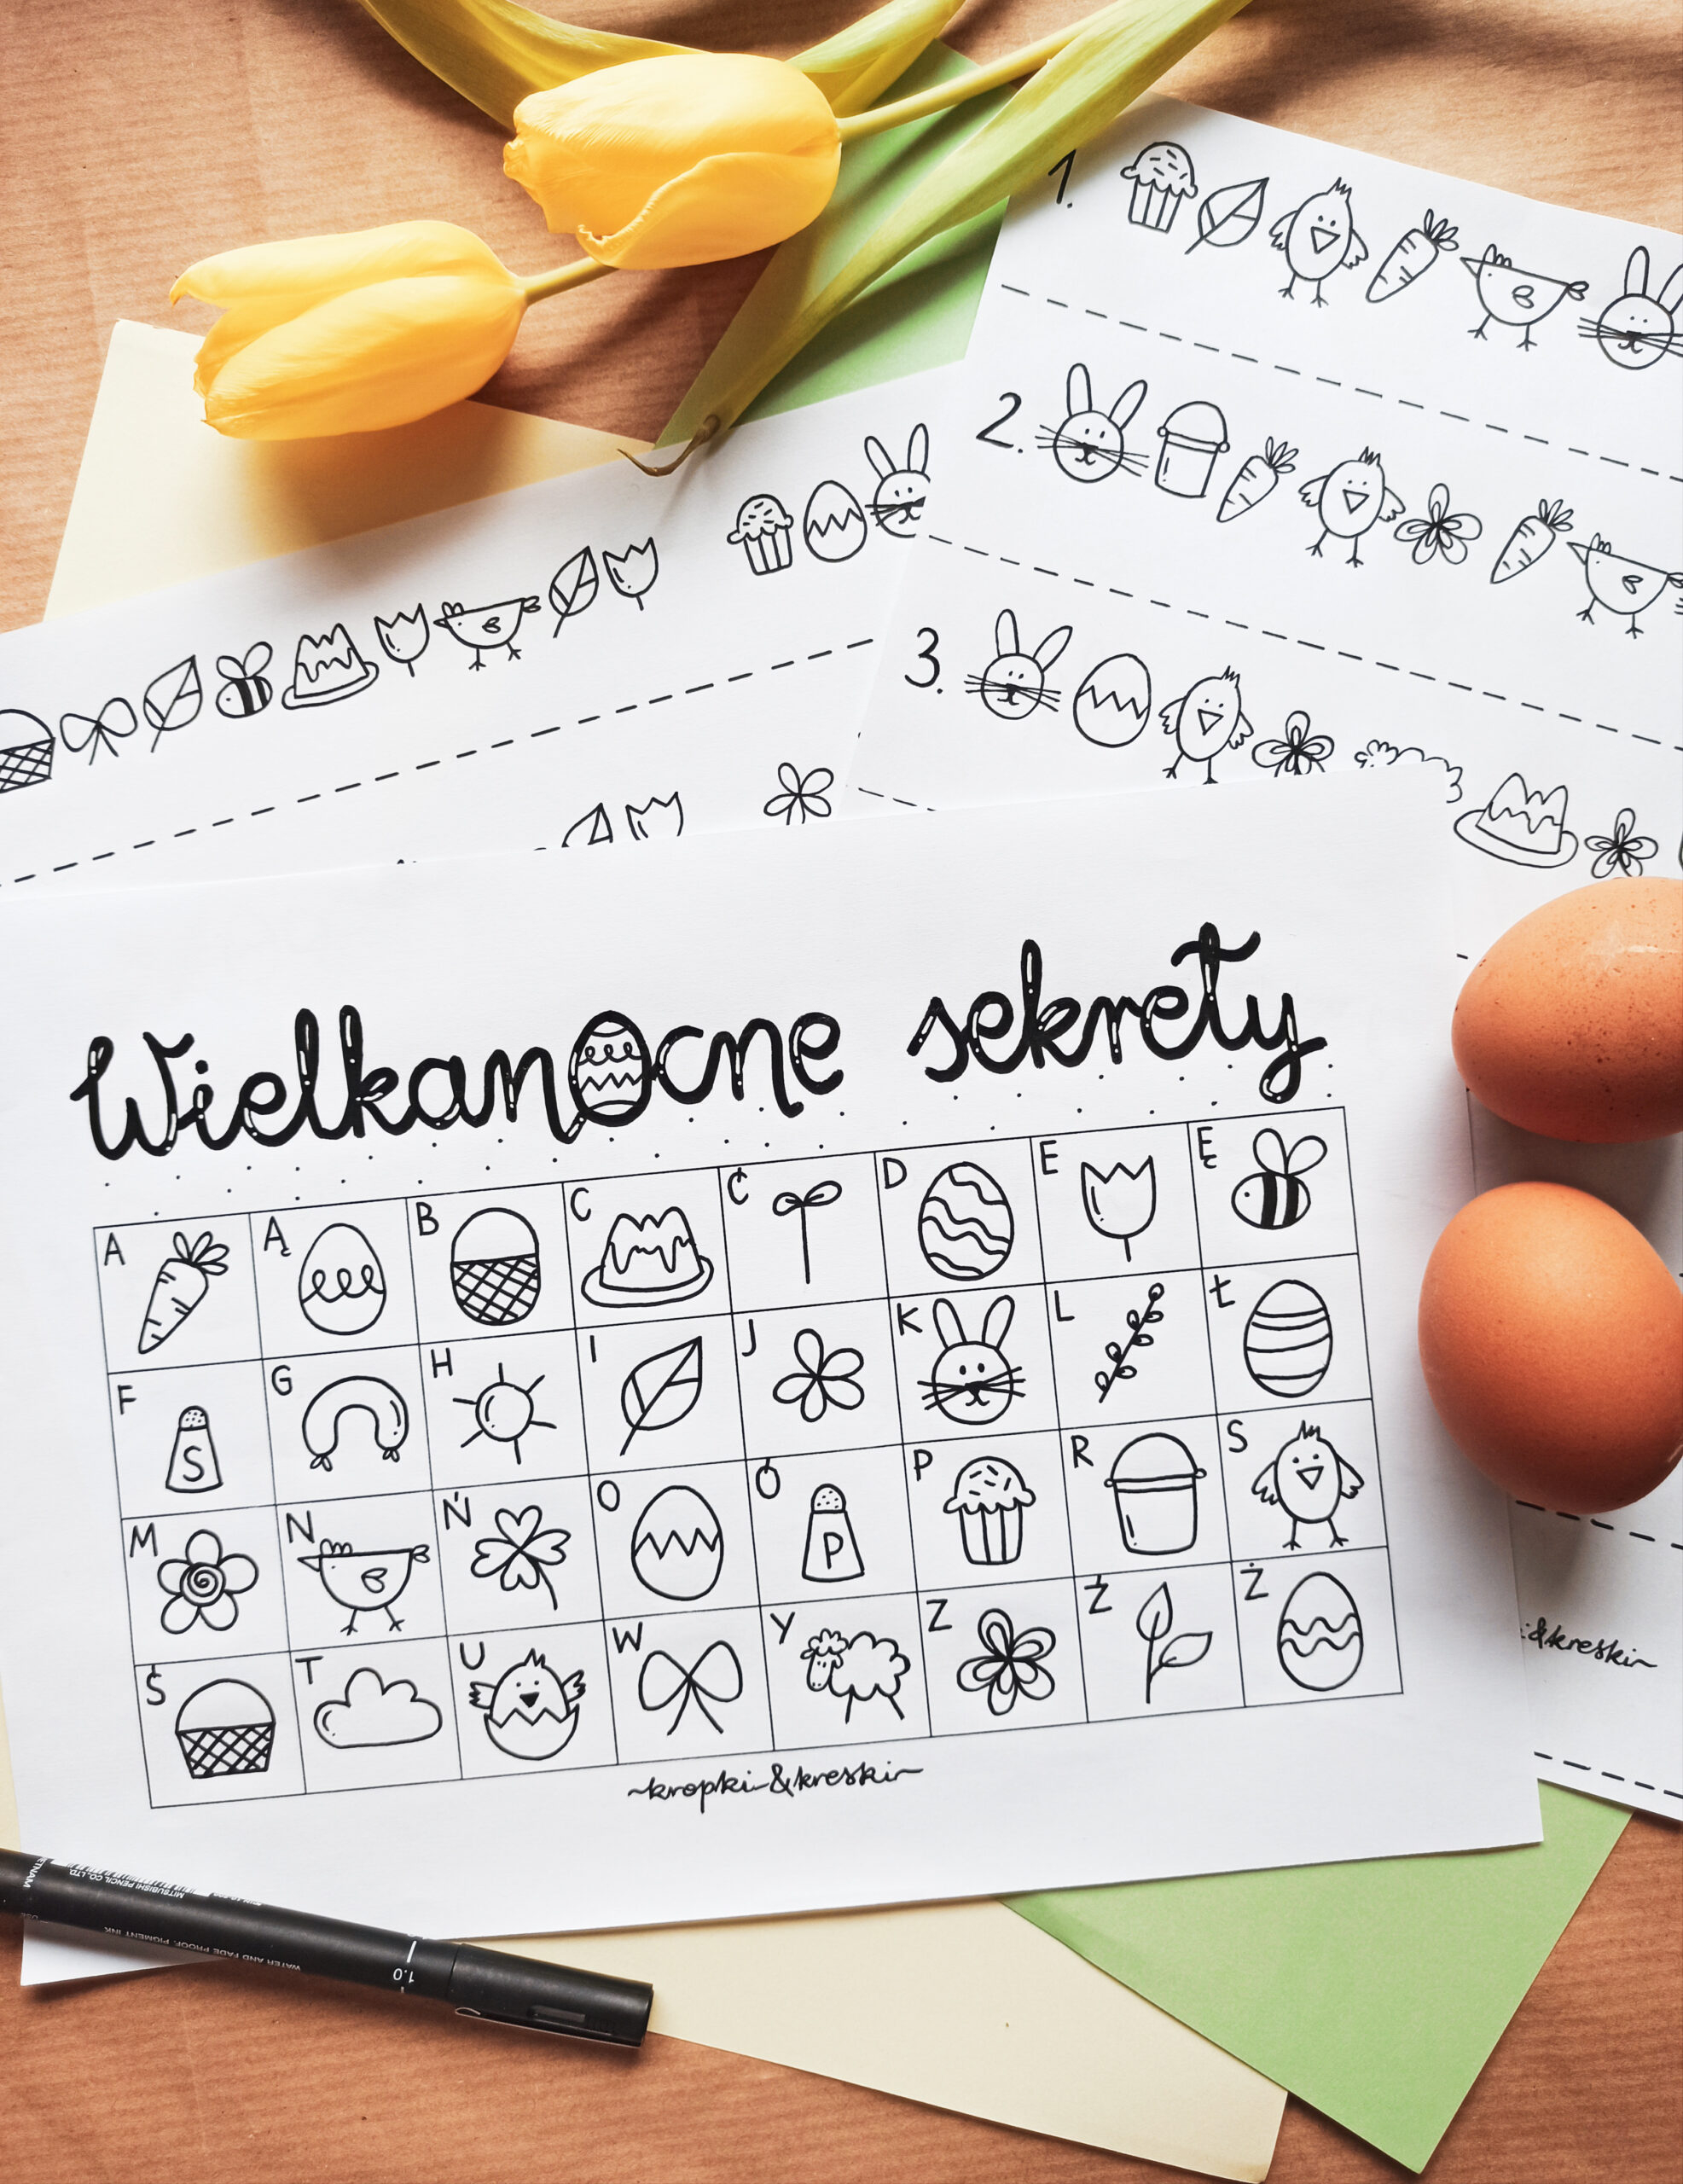 1.
2.
3.
Wielkanocne sekrety
A Ą B C Ć D E Ę
F G H I J K L Ł
S
M N Ń O Ó P R S
P
Ś T U W Y Z Ź Ż
~kropki&kreski~
&kreski~
MITSUBISHI PENCIL CO., LTD.
WATER AND FADE PROOF, PIGMENT INK
1.0